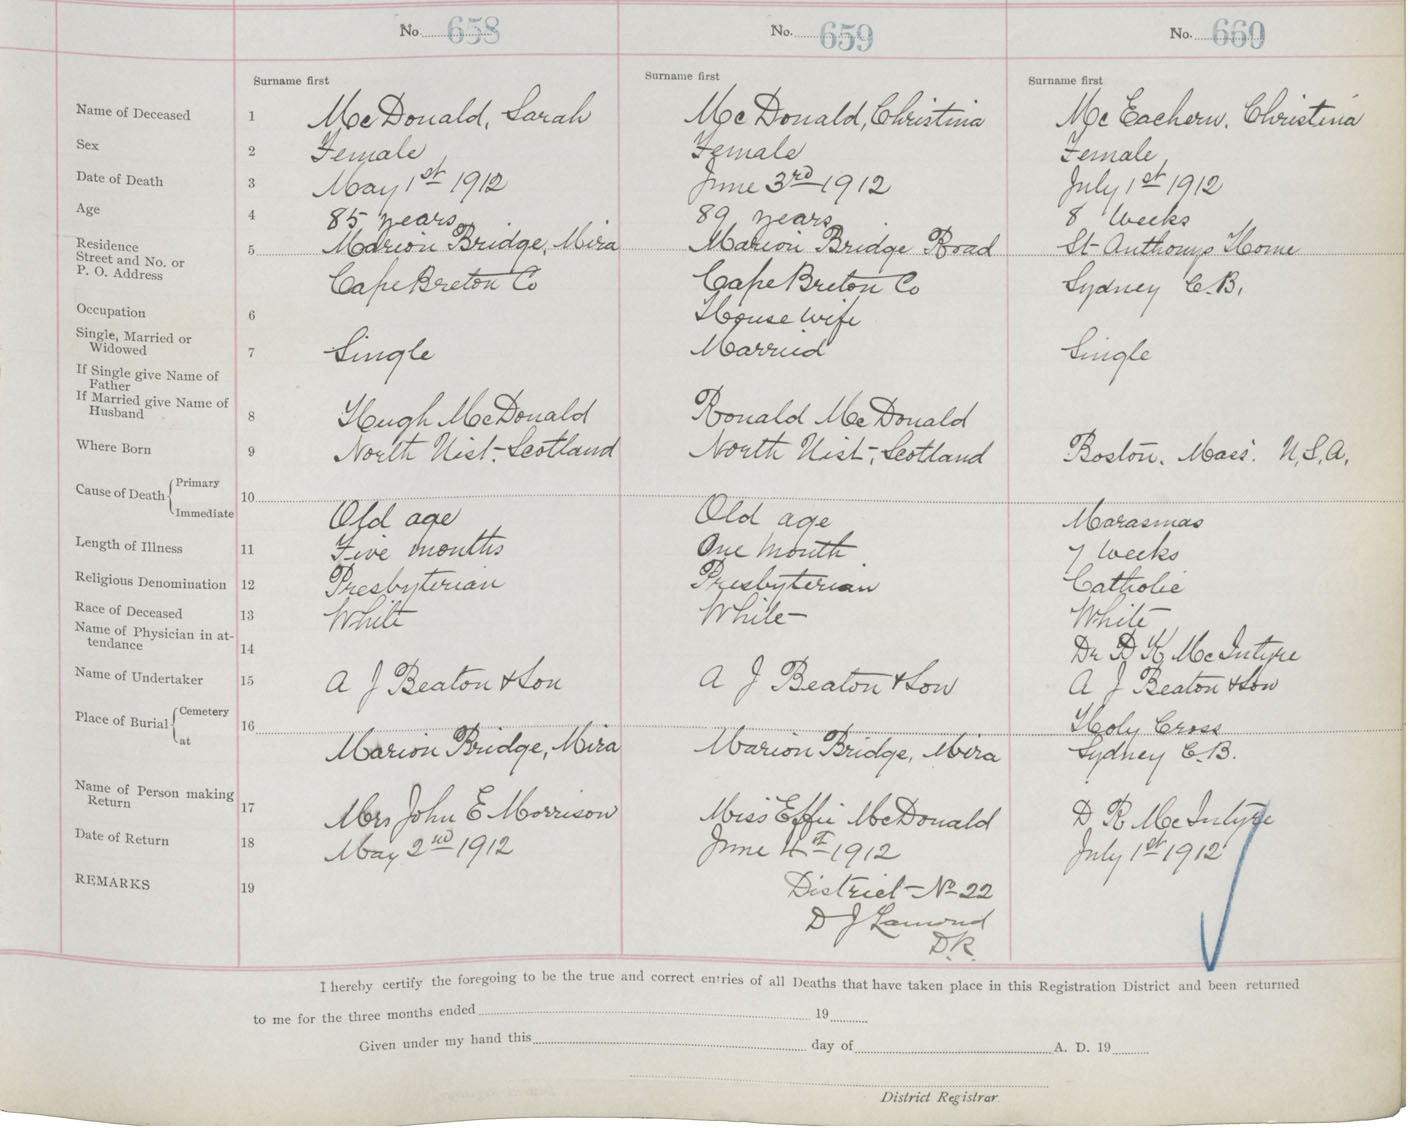 No. 658 No. 659 No. 660
Surname first Surname first Surname first
Name of Deceased 1 McDonald, Sarah McDonald, Christina McEachern, Christina
Sex 2 Female Female Female,
Date of Death 3 May 1st 1912 June 3rd 1912 July 1st 1912
Age 4 85 years 89 years 8 Weeks
Residence 5 Marion Bridge, Mira Marion Bridge Road St Anthonys Home
Street and No. or
P. O. Address Cape Breton Co Cape Breton Co Sydney C.B.
Occupation 6 House wife
Single, Married or
Widowed 7 Single Married Single
If Single give Name of
Father
If Married give Name of
Husband 8 Hugh McDonald Ronald McDonald
Where Born 9 North Uist, Scotland North Uist, Scotland Boston. Mass. U.S.A.
Cause of Death Primary 10
Immediate Old age Old age Marasmas
Length of Illness 11 Five months One Month 7 Weeks
Religious Denomination 12 Presbyterian Presbyterian Catholic
Race of Deceased 13 White White White
Name of Physician in at-
tendance 14 Dr D K McIntyre
Name of Undertaker 15 A J Beaton & Son A J Beaton & Son A J Beaton & Son
Place of Burial Cemetery 16 Holy Cross
at Marion Bridge, Mira Marion Bridge, Mira Sydney C.B.
Name of Person making
Return 17 Mrs John E Morrison Miss Effie McDonald D K McIntyre
Date of Return 18 May 2nd 1912 June 4th 1912 July 1st 1912
REMARKS 19 District No 22
D J Lamond
D.R.
I hereby certify the foregoing to be the true and correct entries of all Deaths that have taken place in this Registration District and been returned
to me for the three months ended 19
Given under my hand this day of A. D. 19
District Registrar.